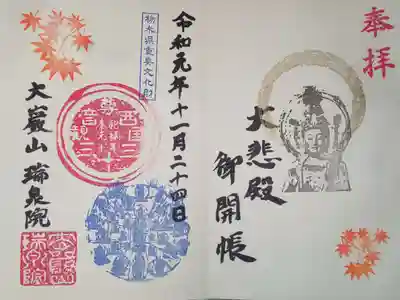 奉拝
大悲殿
御開帳
令和元年十一月二十四日
栃木県重要文化財
大巖山 瑞泉院